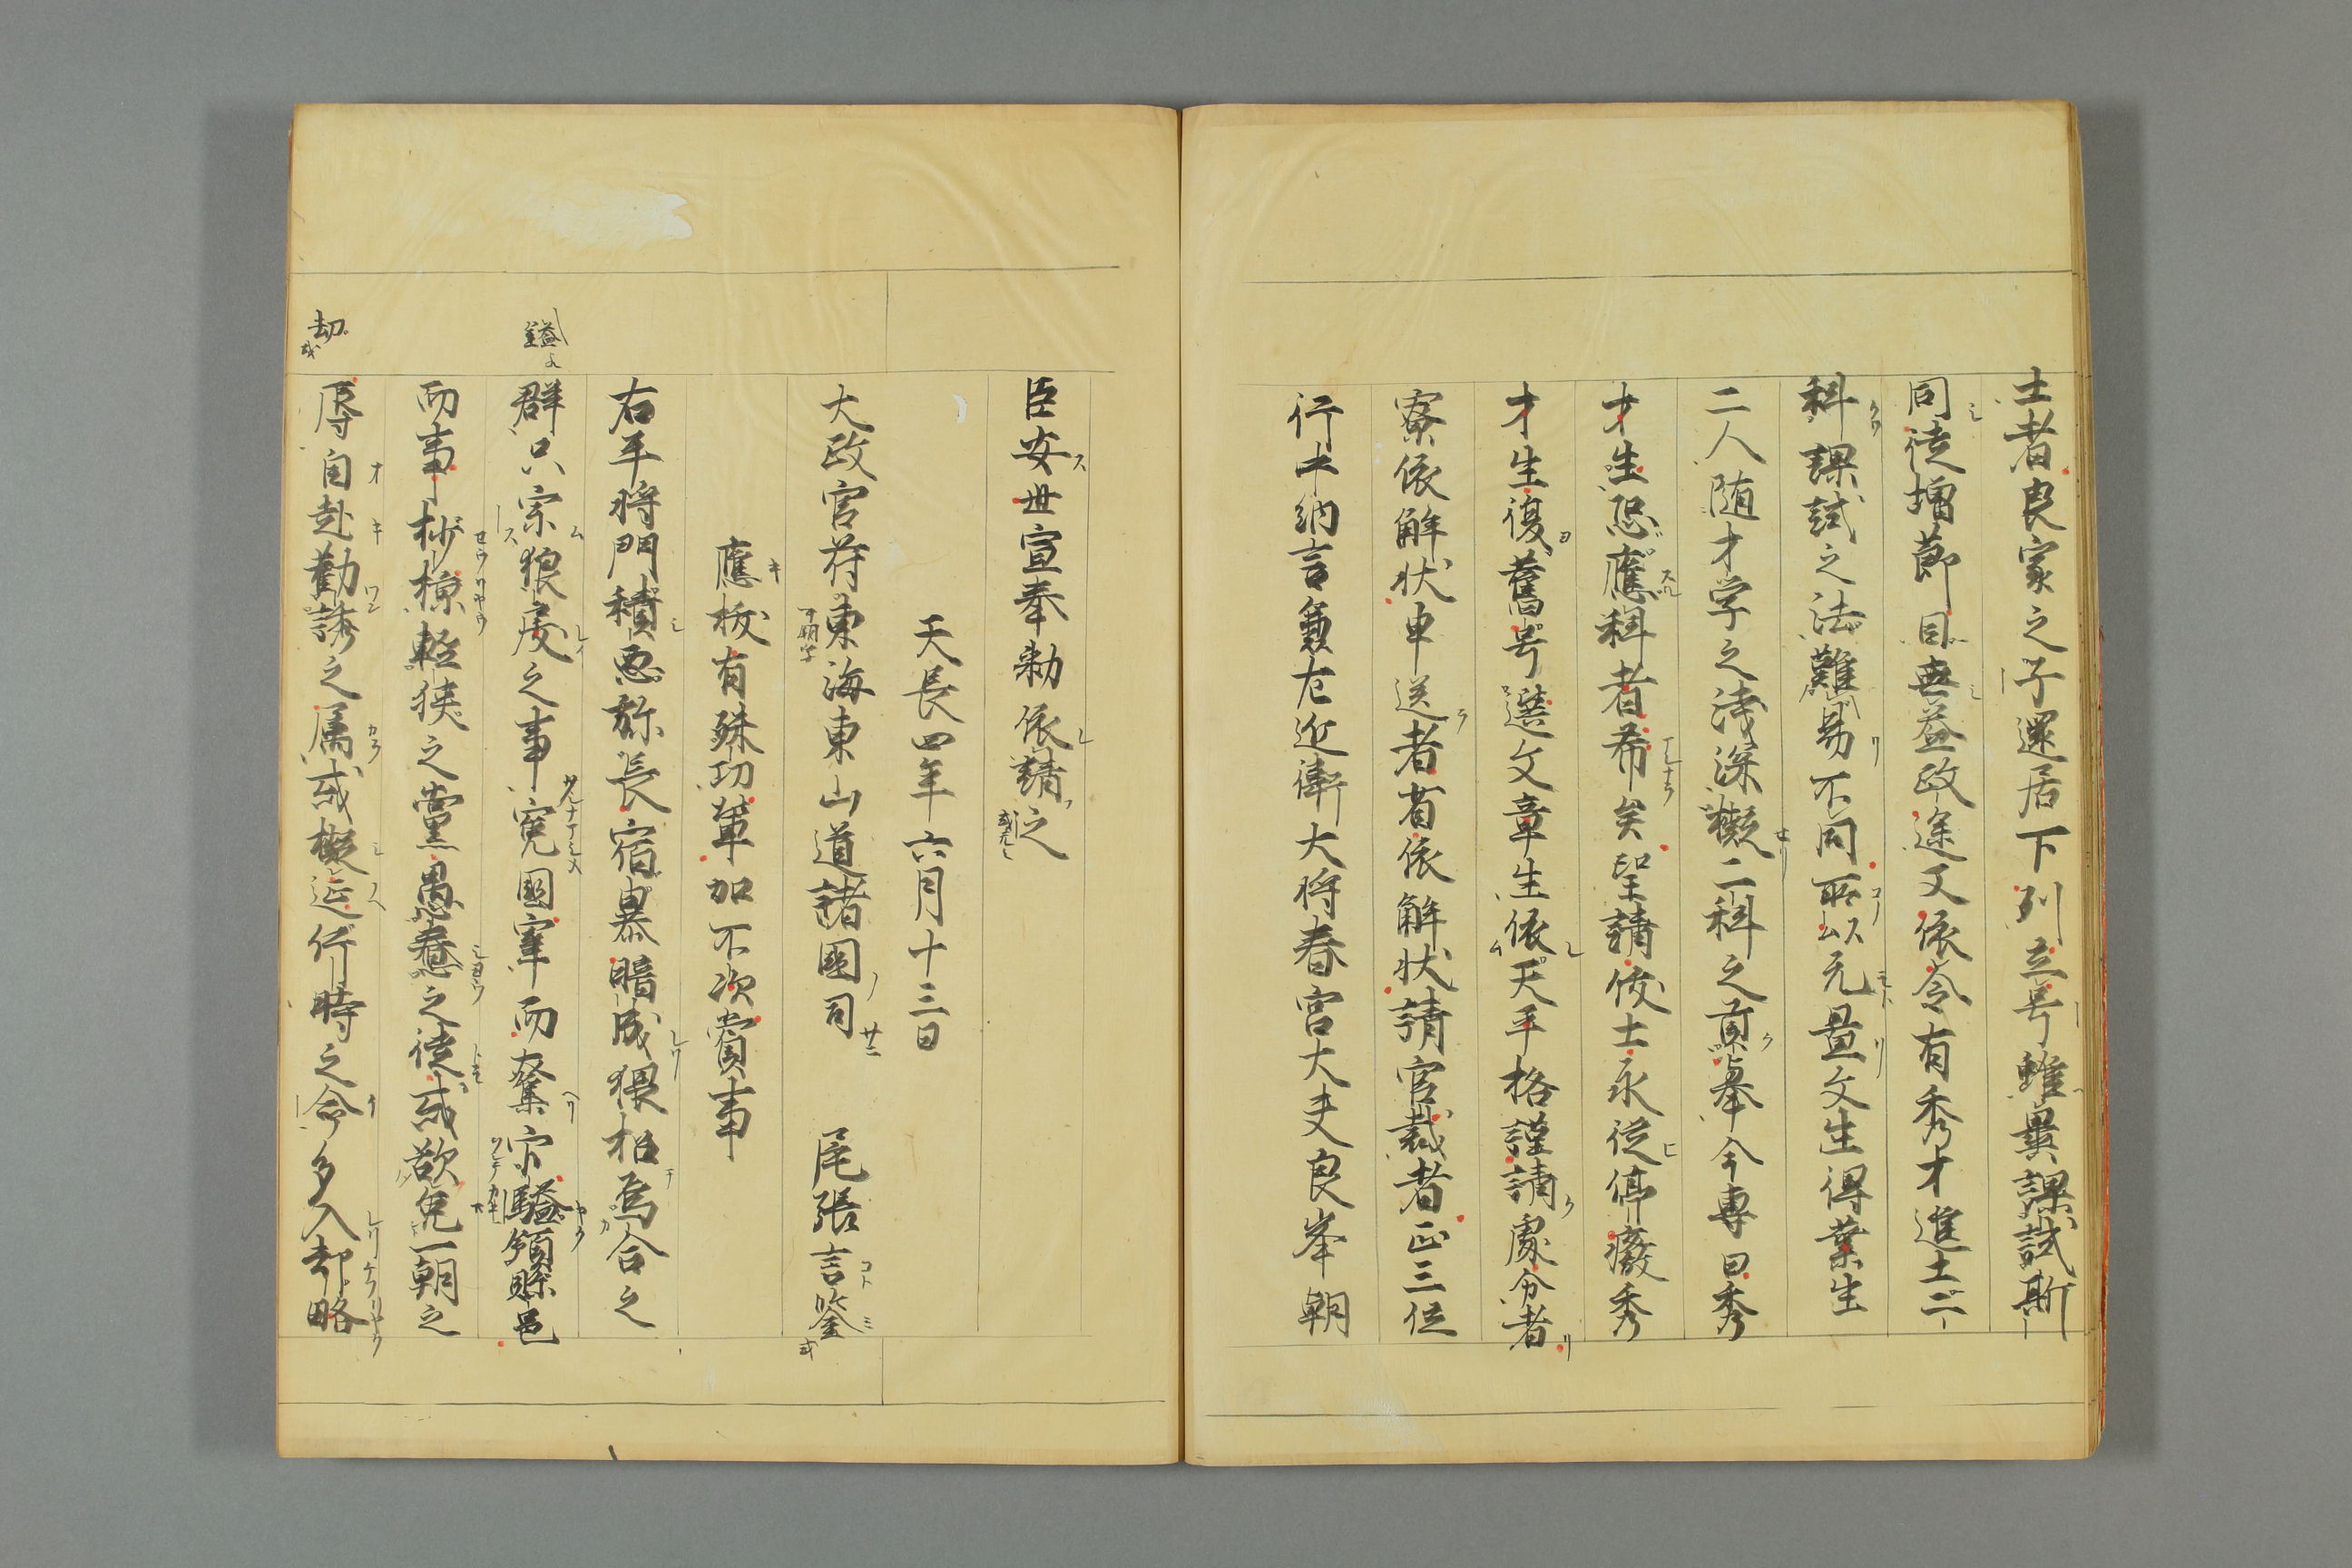 士者良家之子還居下列立号雖異課試斯
同徒増節目無益政途又依令有秀才進士二
科課試之法難易不同所以元置文生得業生
二人随才学之浅深擬二科之貢挙今専曰秀
才生恐應科者希矣望請俊士永従停癈秀
才生復舊号選文章生依天平格謹請處分者
寮依解状申送者省依解状請官裁者正三位
行中納言兼左近衛大将春宮大夫良峯朝
臣安世宣奉勅依請之
天長四年六月十三日
大政官符東海東山道諸國司 尾張言鑒
應抜有殊功輩加不次賞事
右平将門積悪弥長宿暴暗成猥招烏合之
群只宗狼戻之事寃國宰而奪印鎰領縣邑
而事抄掠軽狭之黨愚惷之徒或欲免一朝之
辱自赴勸誘之属或擬延片時之命多入却略
鎰
劫或